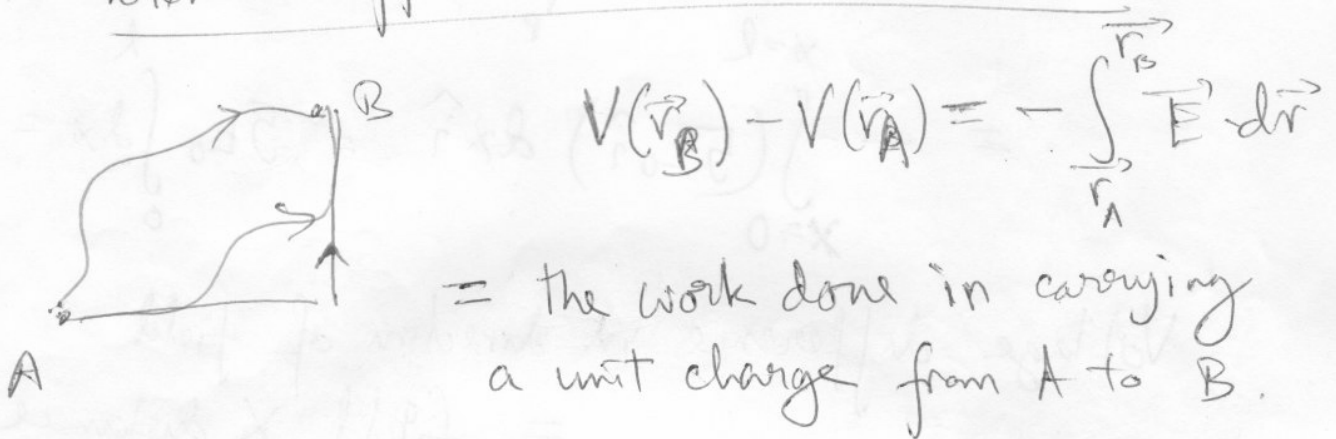 B
V(\vec{r}_B) - V(\vec{r}_A) = - \int_{\vec{r}_A}^{\vec{r}_B} \vec{E} \cdot d\vec{r}
= the work done in carrying
a unit charge from A to B.
A